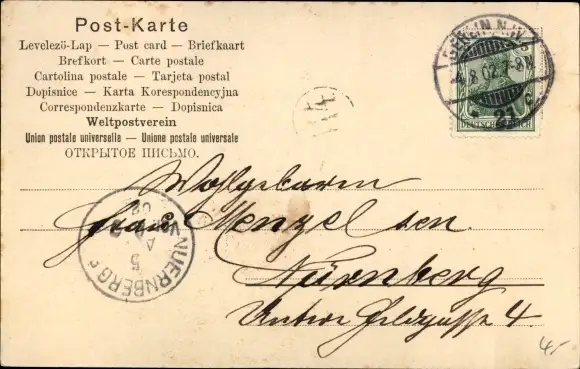 Post-Karte
Levelező-Lap — Post card — Briefkaart
Brefkort — Carte postale
Cartolina postale — Tarjeta postal
Dopisnice — Karta Korespondencyjna
Correspondenzkarte — Dopisnica
Weltpostverein
Union postale universelle — Unione postale universale
ОТКРЫТОЕ ПИСЬМО.
BERLIN N.W.
4.8.02
21 c
DEUTSCHES REICH
Wohlgeboren
Frau Menzel sen.
Nürnberg
Untere Feldgasse 4.
NUERNBERG
5
4/-